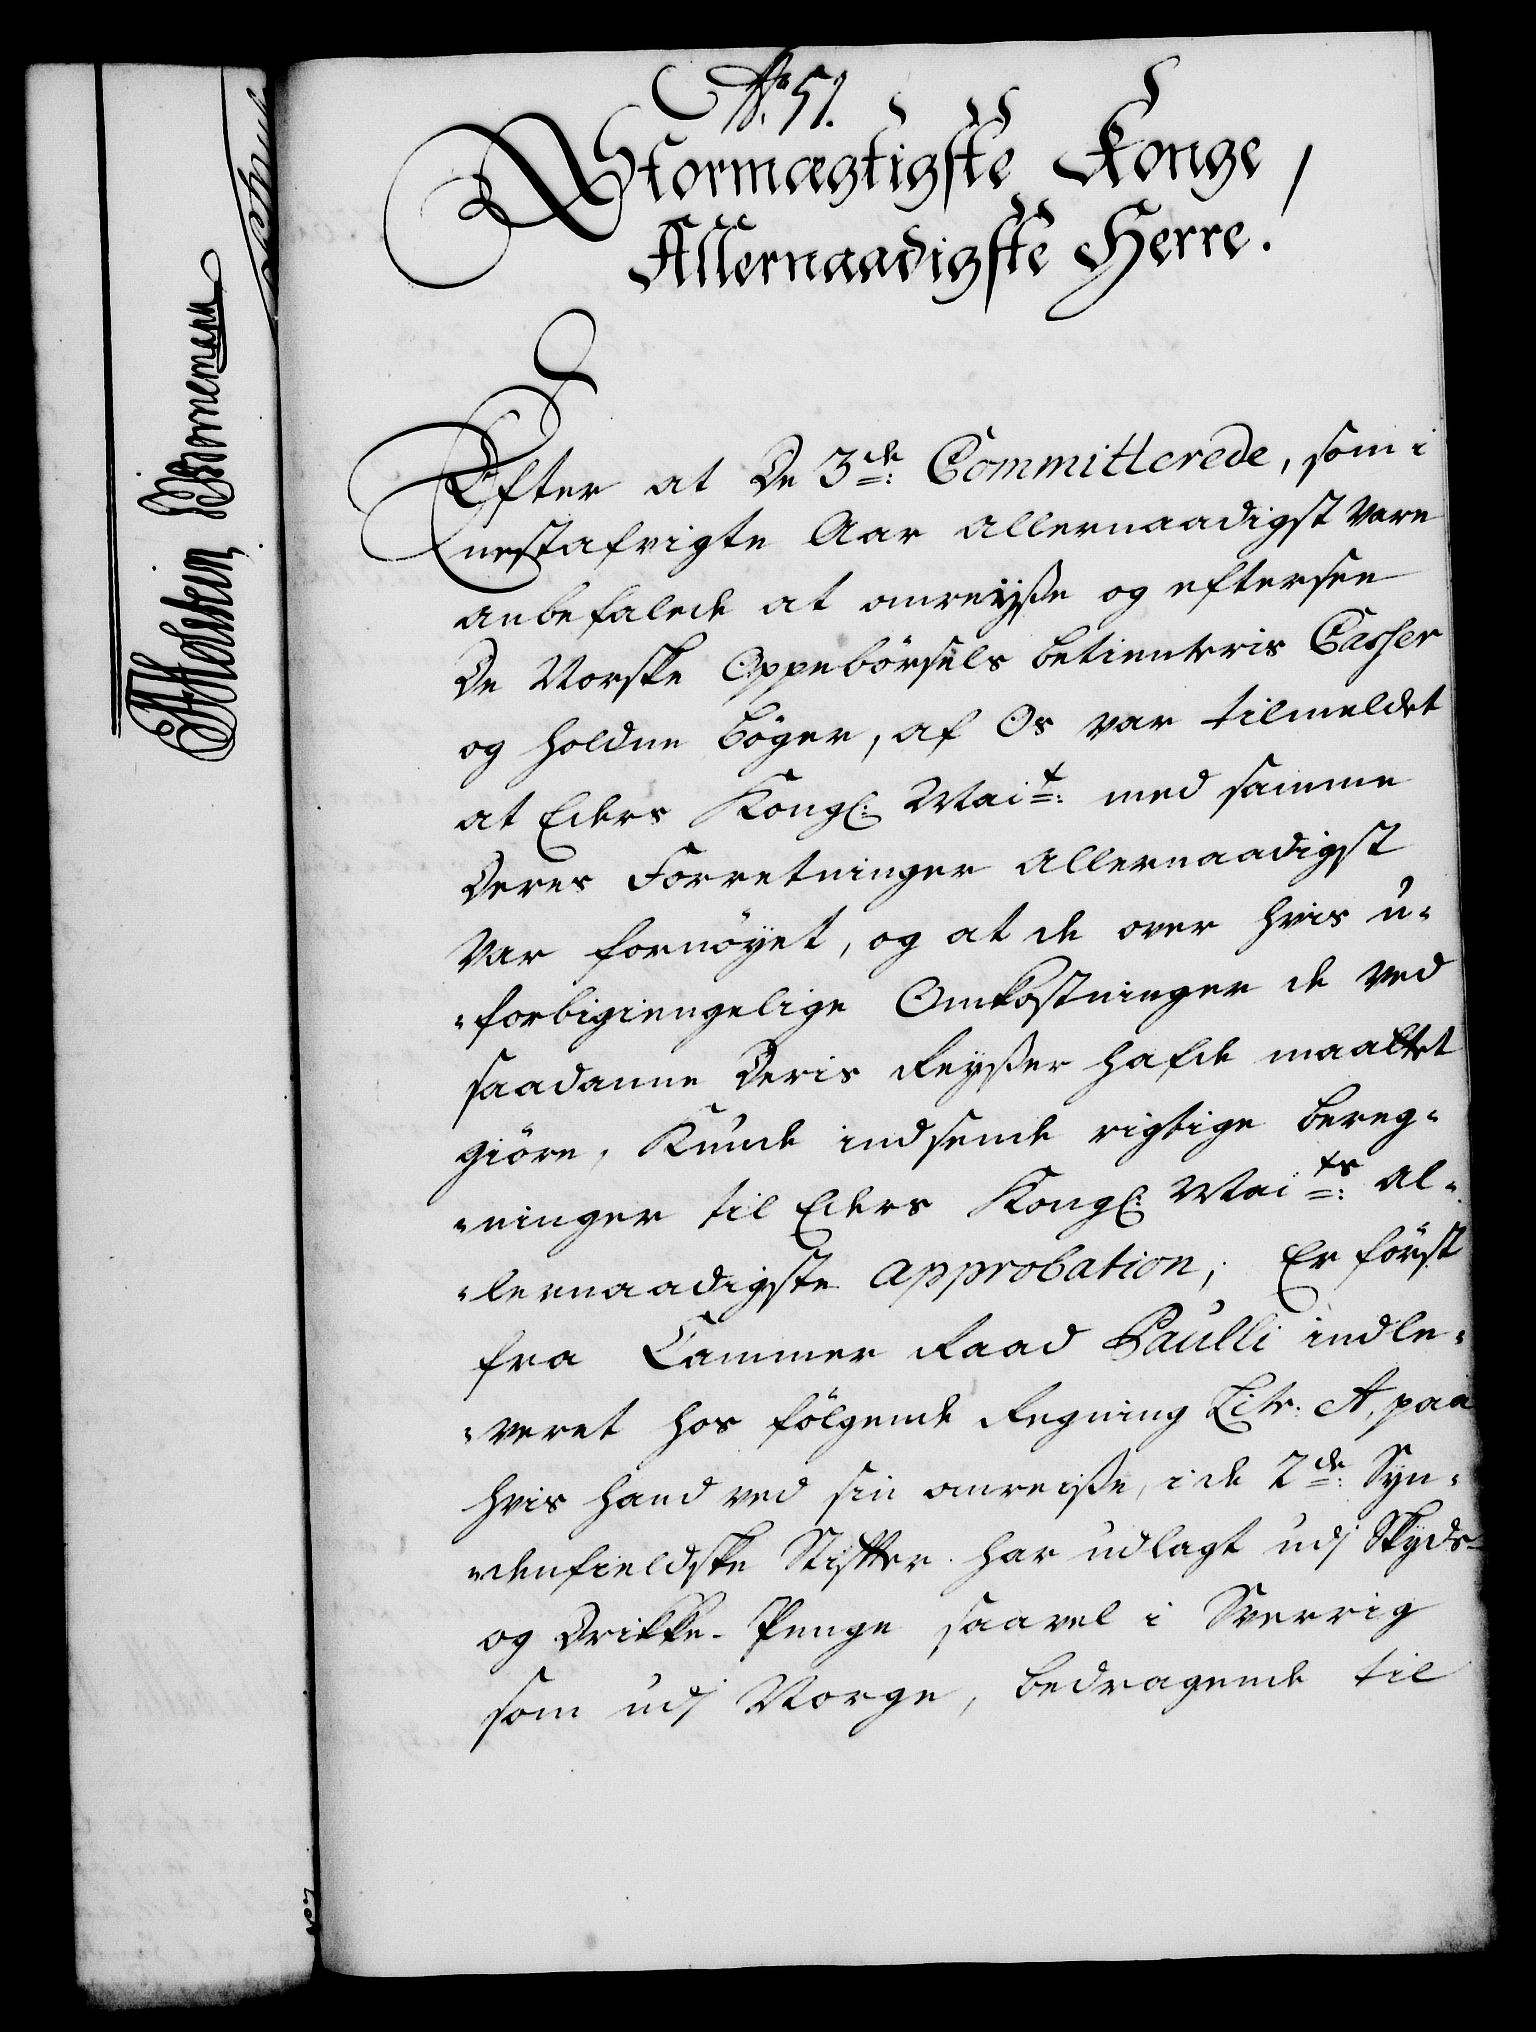 No 51.
Stormægtigste Konge,
Allernaadigste Herre.
Efter at De 3de: Committerede, som i
nestafvigte Aar allernaadigst vare
anbefalede at omreyße og eftersee
De Norske Oppebörsels betienteris Casser
og holdne Böger, af Os var tilmeldet
at Eders Kongl: Mait: med samme
Deres Forretninger allernaadigst
var fornöyet, og at de over hvis u-
-forbigiengelige Omkostninger de ved
saadanne Deris Reyßer hafde maattet
giöre, Kunde indsende rigtige bereg-
-ninger til Eders Kongl: Maits: al-
-lernaadigste approbation; Er först
fra Cammer Raad Paulli indle-
-veret hos fölgende Regning Litr: A, paa
hvis hand ved sin omreiße, i de 2de: Syn-
-denfieldske Stifter har udlagt udj Skyds-
og Drikke-Penge saavel i Sverrig
som udj Norge, bedragende til